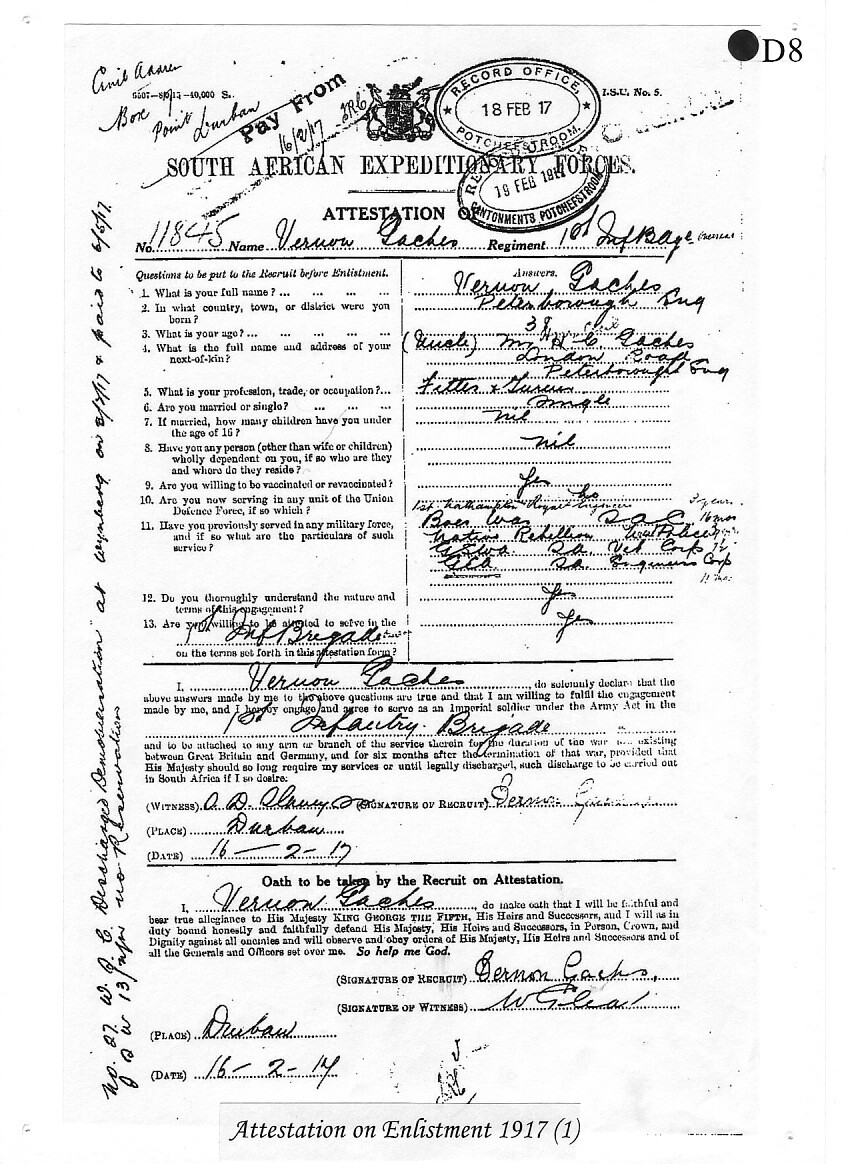 D8
Civil
5507—8/9/15—40,000 S.
Box
Point Durban
Pay From
16/2/17
RECORD OFFICE,
18 FEB 17
POTCHEFSTROOM.
I.S.U. No. 5.
19 FEB 1917
CANTONMENTS POTCHEFSTROOM
SOUTH AFRICAN EXPEDITIONARY FORCES.
ATTESTATION OF
No. 11845 Name Vernon Gaches Regiment 1st Inf Bde Overseas
Questions to be put to the Recruit before Enlistment.
Answers.
1. What is your full name? ... ... ... ...
Vernon Gaches
2. In what country, town, or district were you
born?
Peterborough Eng
3. What is your age?... ... ... ... ...
38
4. What is the full name and address of your
next-of-kin?
(Uncle) Mr W C Gaches
London Road
Peterborough Eng
5. What is your profession, trade, or occupation?...
Fitter & Turner
6. Are you married or single? ... ... ...
Single
7. If married, how many children have you under
the age of 16?
nil
8. Have you any person (other than wife or children)
wholly dependent on you, if so who are they
and where do they reside?
nil
9. Are you willing to be vaccinated or revaccinated?
Yes
10. Are you now serving in any unit of the Union
Defence Force, if so which?
No
11. Have you previously served in any military force,
and if so what are the particulars of such
service?
1st Royal Engineers 3 years
Boer War S.A.C. 16 mos
Native Rebellion Police
GSWA SA. Vet Corp
GEA SA. Engineers Corp
12. Do you thoroughly understand the nature and
terms of this engagement?
Yes
13. Are you willing to be attested to serve in the
1st Inf Brigade
on the terms set forth in this attestation form?
Yes
I, Vernon Gaches, do solemnly declare that the
above answers made by me to the above questions are true and that I am willing to fulfil the engagement
made by me, and I hereby engage and agree to serve as an Imperial soldier under the Army Act in the
1st Infantry Brigade
and to be attached to any arm or branch of the service therein for the duration of the war now existing
between Great Britain and Germany, and for six months after the termination of that war, provided that
His Majesty should so long require my services or until legally discharged, such discharge to be carried out
in South Africa if I so desire.
(WITNESS) A. D. (SIGNATURE OF RECRUIT) Vernon Gaches
(PLACE) Durban
(DATE) 16 — 2 - 17
Oath to be taken by the Recruit on Attestation.
I, Vernon Gaches, do make oath that I will be faithful and
bear true allegiance to His Majesty KING GEORGE THE FIFTH, His Heirs and Successors, and I will as in
duty bound honestly and faithfully defend His Majesty, His Heirs and Successors, in Person, Crown, and
Dignity against all enemies and will observe and obey orders of His Majesty, His Heirs and Successors and of
all the Generals and Officers set over me. So help me God.
(SIGNATURE OF RECRUIT) Vernon Gaches,
(SIGNATURE OF WITNESS)
(PLACE) Durban
(DATE) 16 — 2 - 17
No. 27 W.O.C. Discharged "Demobilisation" at Wynberg on & paid to 6/5/17.
no Reservation
Attestation on Enlistment 1917 (1)